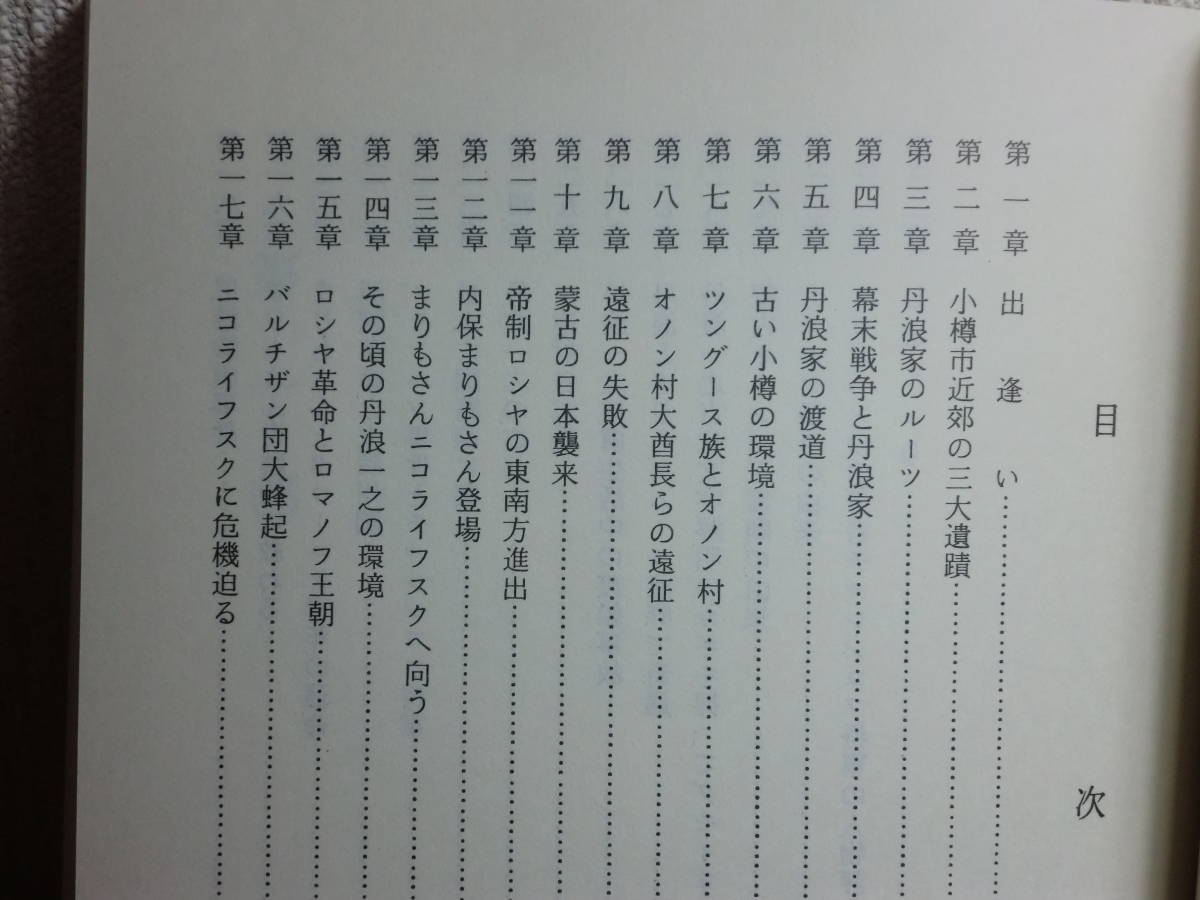 目次
第一章 出逢い
第二章 小樽市近郊の三大遺蹟
第三章 丹浪家のルーツ
第四章 幕末戦争と丹浪家
第五章 丹浪家の渡道
第六章 古い小樽の環境
第七章 ツングース族とオノン村
第八章 オノン村大酋長らの遠征
第九章 遠征の失敗
第十章 蒙古の日本襲来
第一一章 帝制ロシヤの東南方進出
第一二章 内保まりもさん登場
第一三章 まりもさんニコライフスクへ向う
第一四章 その頃の丹浪一之の環境
第一五章 ロシヤ革命とロマノフ王朝
第一六章 バルチザン団大蜂起
第一七章 ニコライフスクに危機迫る